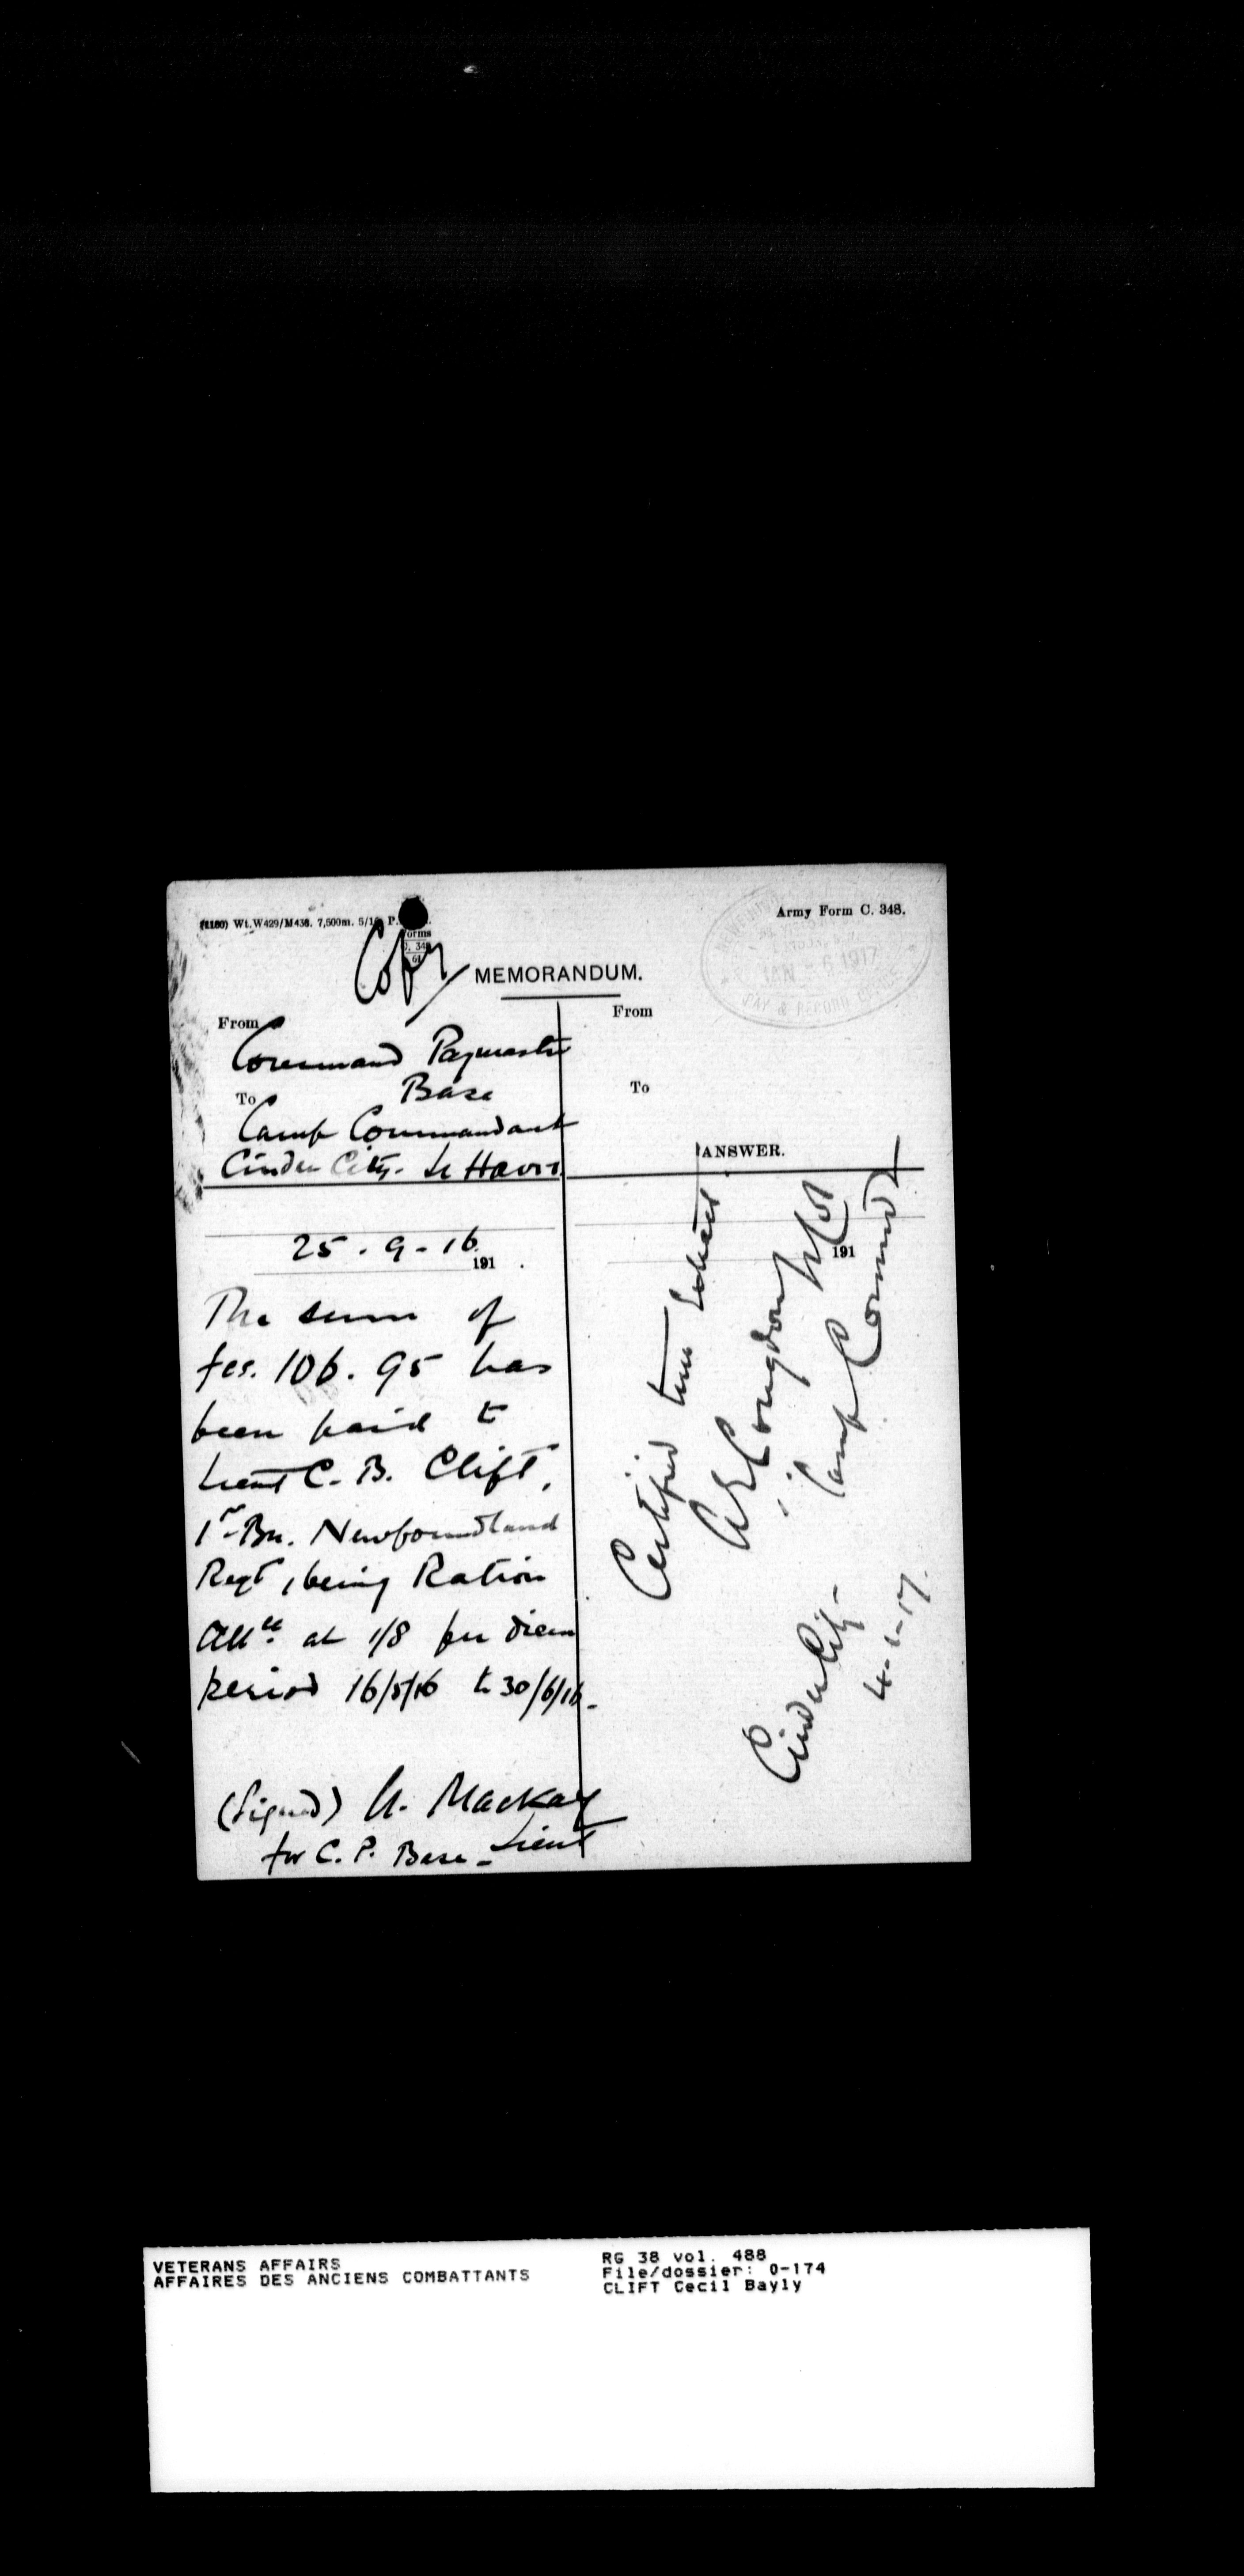 (1180) Wt.W429/M438. 7,500m. 5/1 P.
orms
C. 348
61
Army Form C. 348.
JAN - 6 1917
PAY & RECORD OFFICE
Copy
MEMORANDUM.
From
Command Paymaster
Base
To
Camp Commandant
Cinder City. Le Havre
25 . 9 - 16
191 .
The sum of
fcs. 106. 95 has
been paid to
Lieut C. B. Clift,
1st Bn. Newfoundland
Regt, being Ration
Allce at 1/8 per diem
period 16/5/16 to 30/6/16-
(Signed) A. Mackay
Lieut
for C. P. Base -
From
To
ANSWER.
191
Certified true Extract
Congdon Lt Col
Camp Commdt
Cinder City -
4-1-17.
VETERANS AFFAIRS
AFFAIRES DES ANCIENS COMBATTANTS
RG 38 vol. 488
File/dossier: 0-174
CLIFT Cecil Bayly